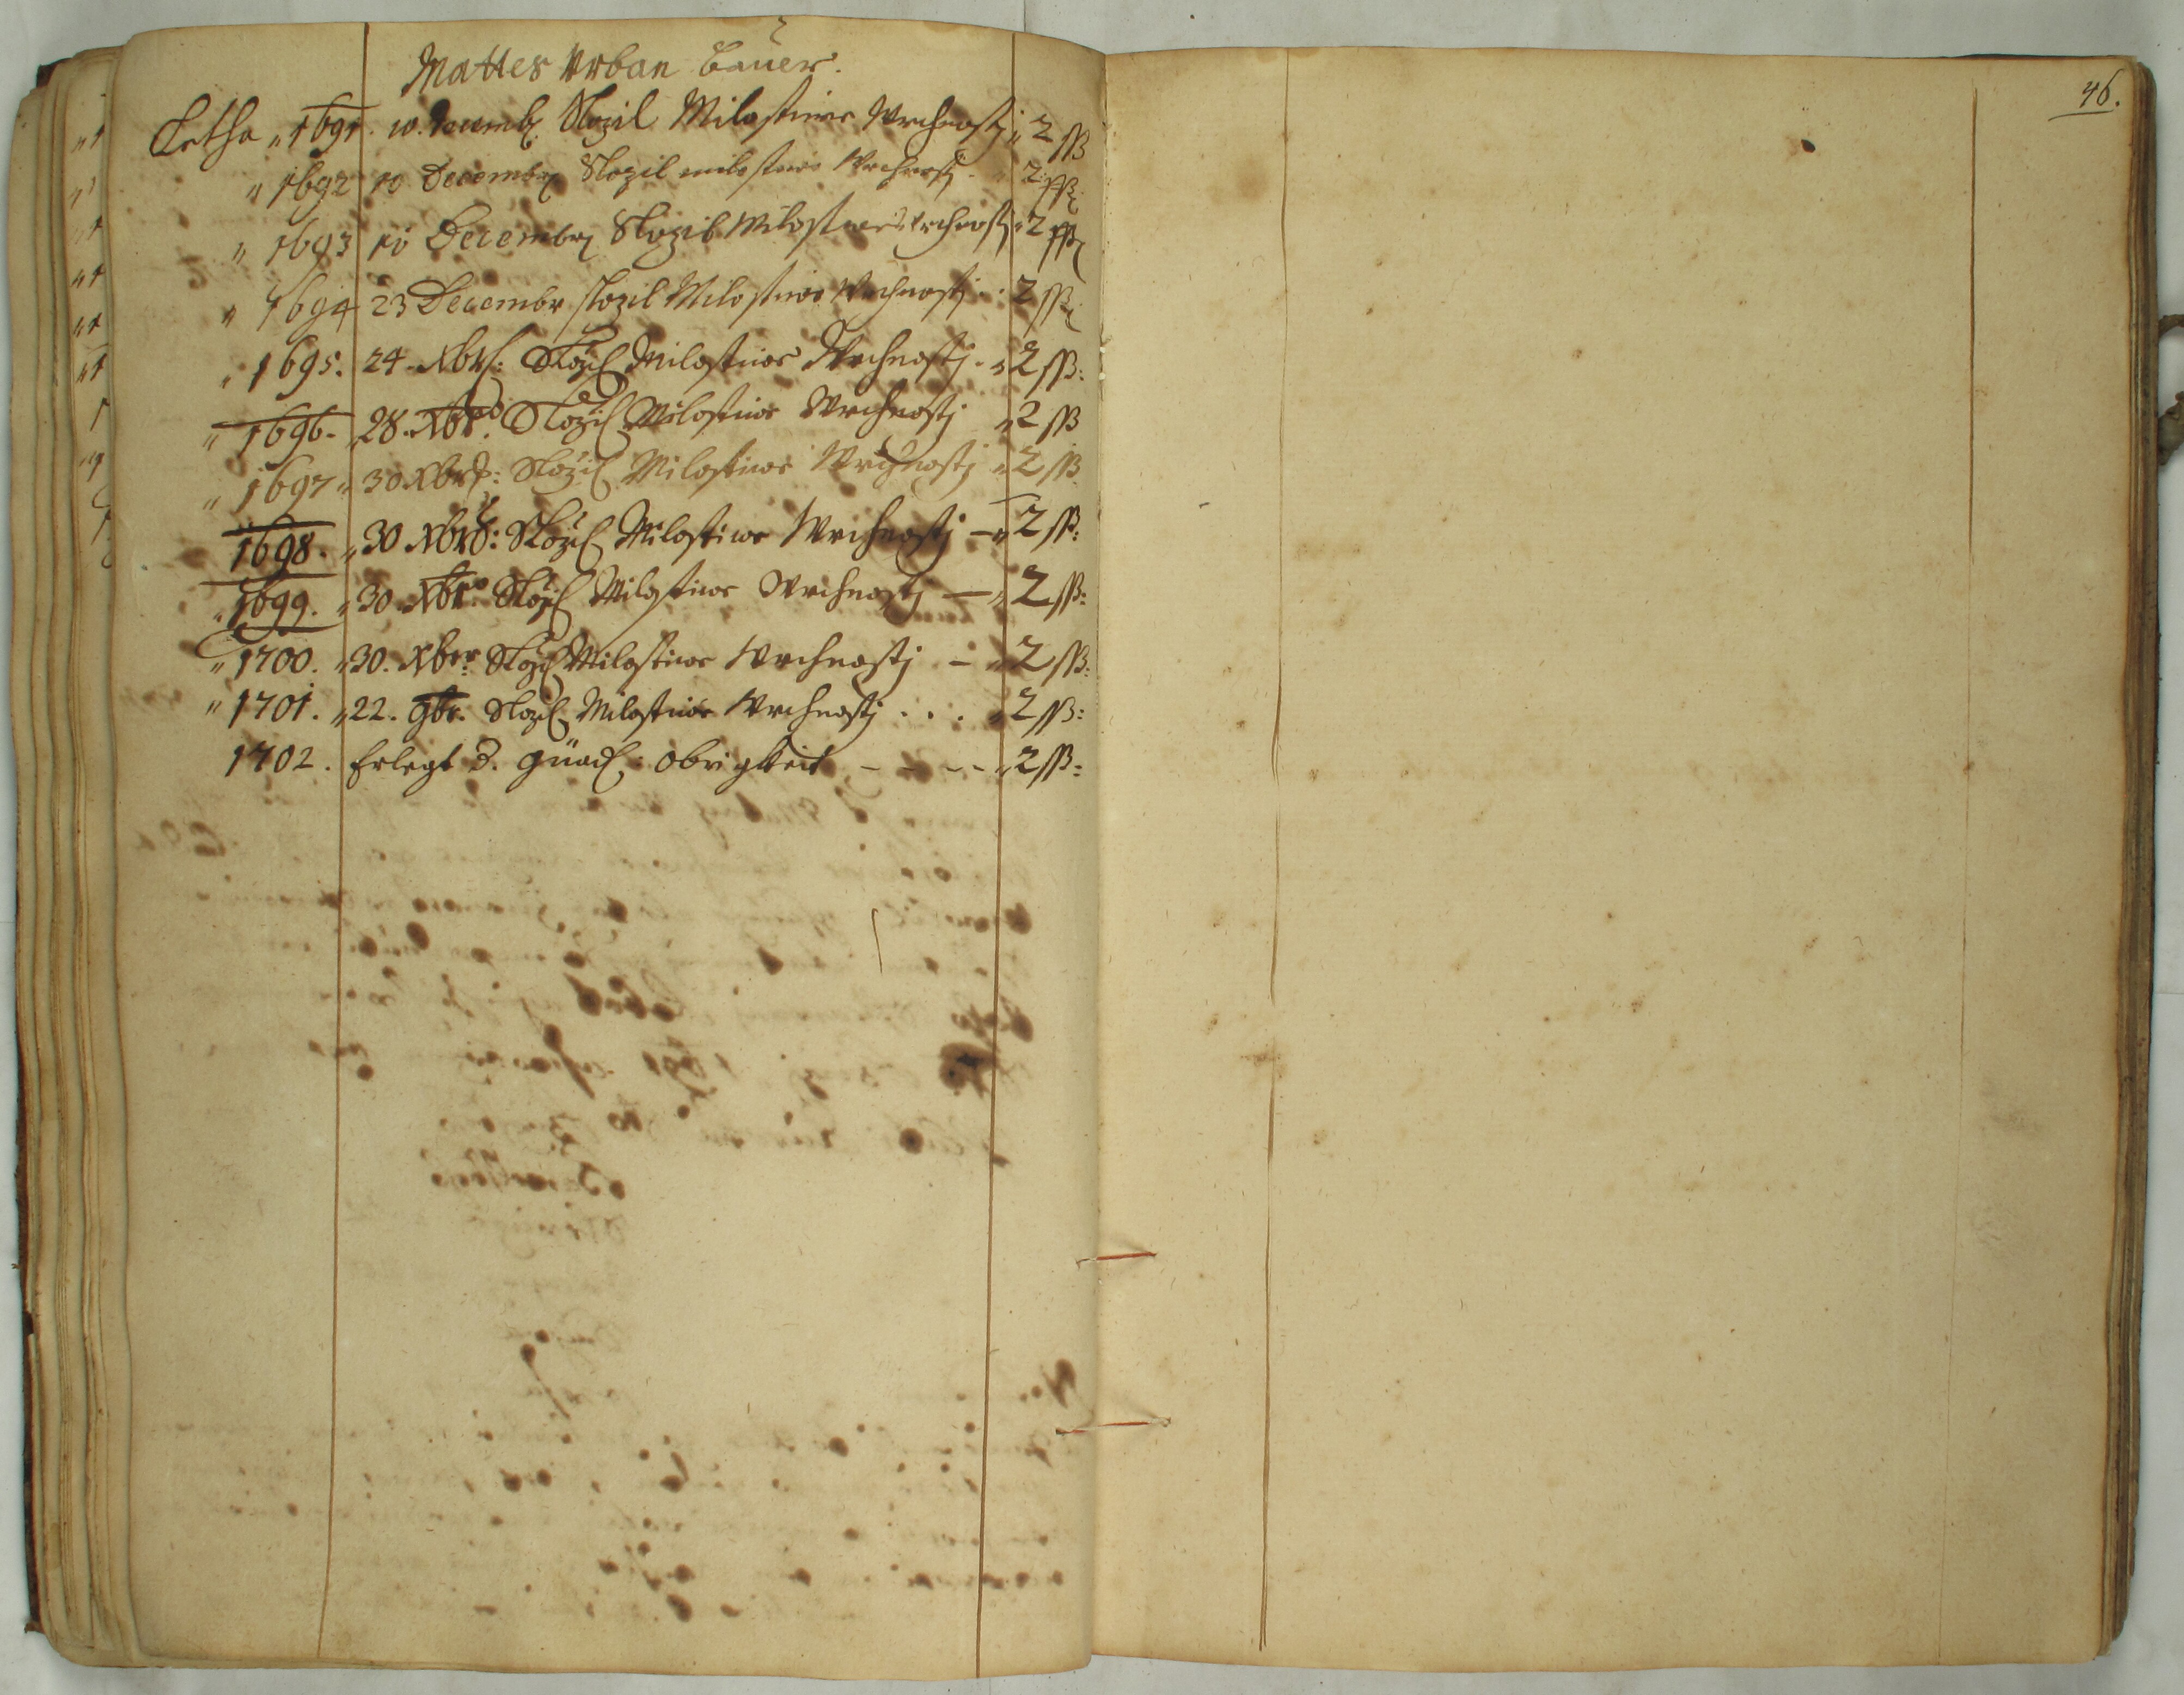 Mattes Vrban Bauer.
Letha „ 1691. 10. Decemb. Slozil Milostiwe Vrchnosti „ 2 ß
„ 1692 10 Decembr Slozil milostiwe Vrchnosti „ 2 ß
„ 1693 10 Decembr Slozil Milostiwe Vrchnosti „ 2 ß
„ 1694 23 Decembr slozil Milostiwe Vrchnosti . . 2 ß
„ 1695. 24. Xbris: Složil Milostiwe Vrchnostj . „ 2 ß:
„ 1696. „ 28. Xbris: Složil Milostiwe Vrchnostj „ 2 ß
„ 1697 „ 30 Xbris: Složil Milostiwe Vrchnostj „ 2 ß
1698. „ 30 Xbris: Složil Milostiwe Vrchnostj — „ 2 ß:
„ 1699. „ 30. Xbr: Složil Milostiwe Vrchnostj — „ 2 ß:
„ 1700. „ 30. Xber: Složil Milostiwe Vrchnostj — „ 2 ß:
„ 1701. „ 22. 9br. Slozil Milostiwe Vrchnostj . . . „ 2 ß:
1702. Erlegt d. gnäd: Obrigkeit - - - - „ 2 ß:
46.